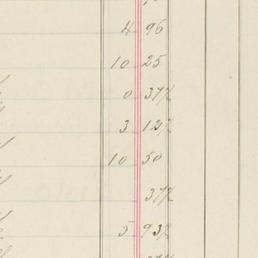 4 96
10 25
0 37½
3 12½
10 50
37½
5 93¾